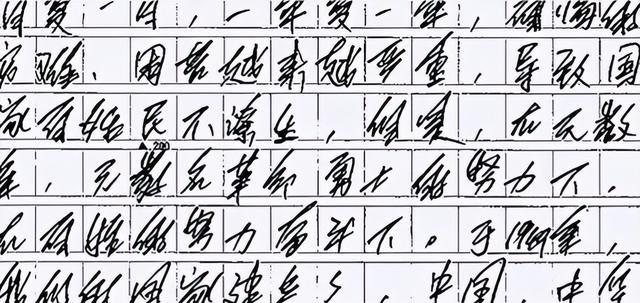 日复一日，一年复一年，
难、困苦越来越严重，导致国
家百姓民不聊生，但是，在无数
▲200
年，无数名革命勇士的努力下，
在百姓的努力奋斗下。于1949年，
我们的国家建立了，中国，中华